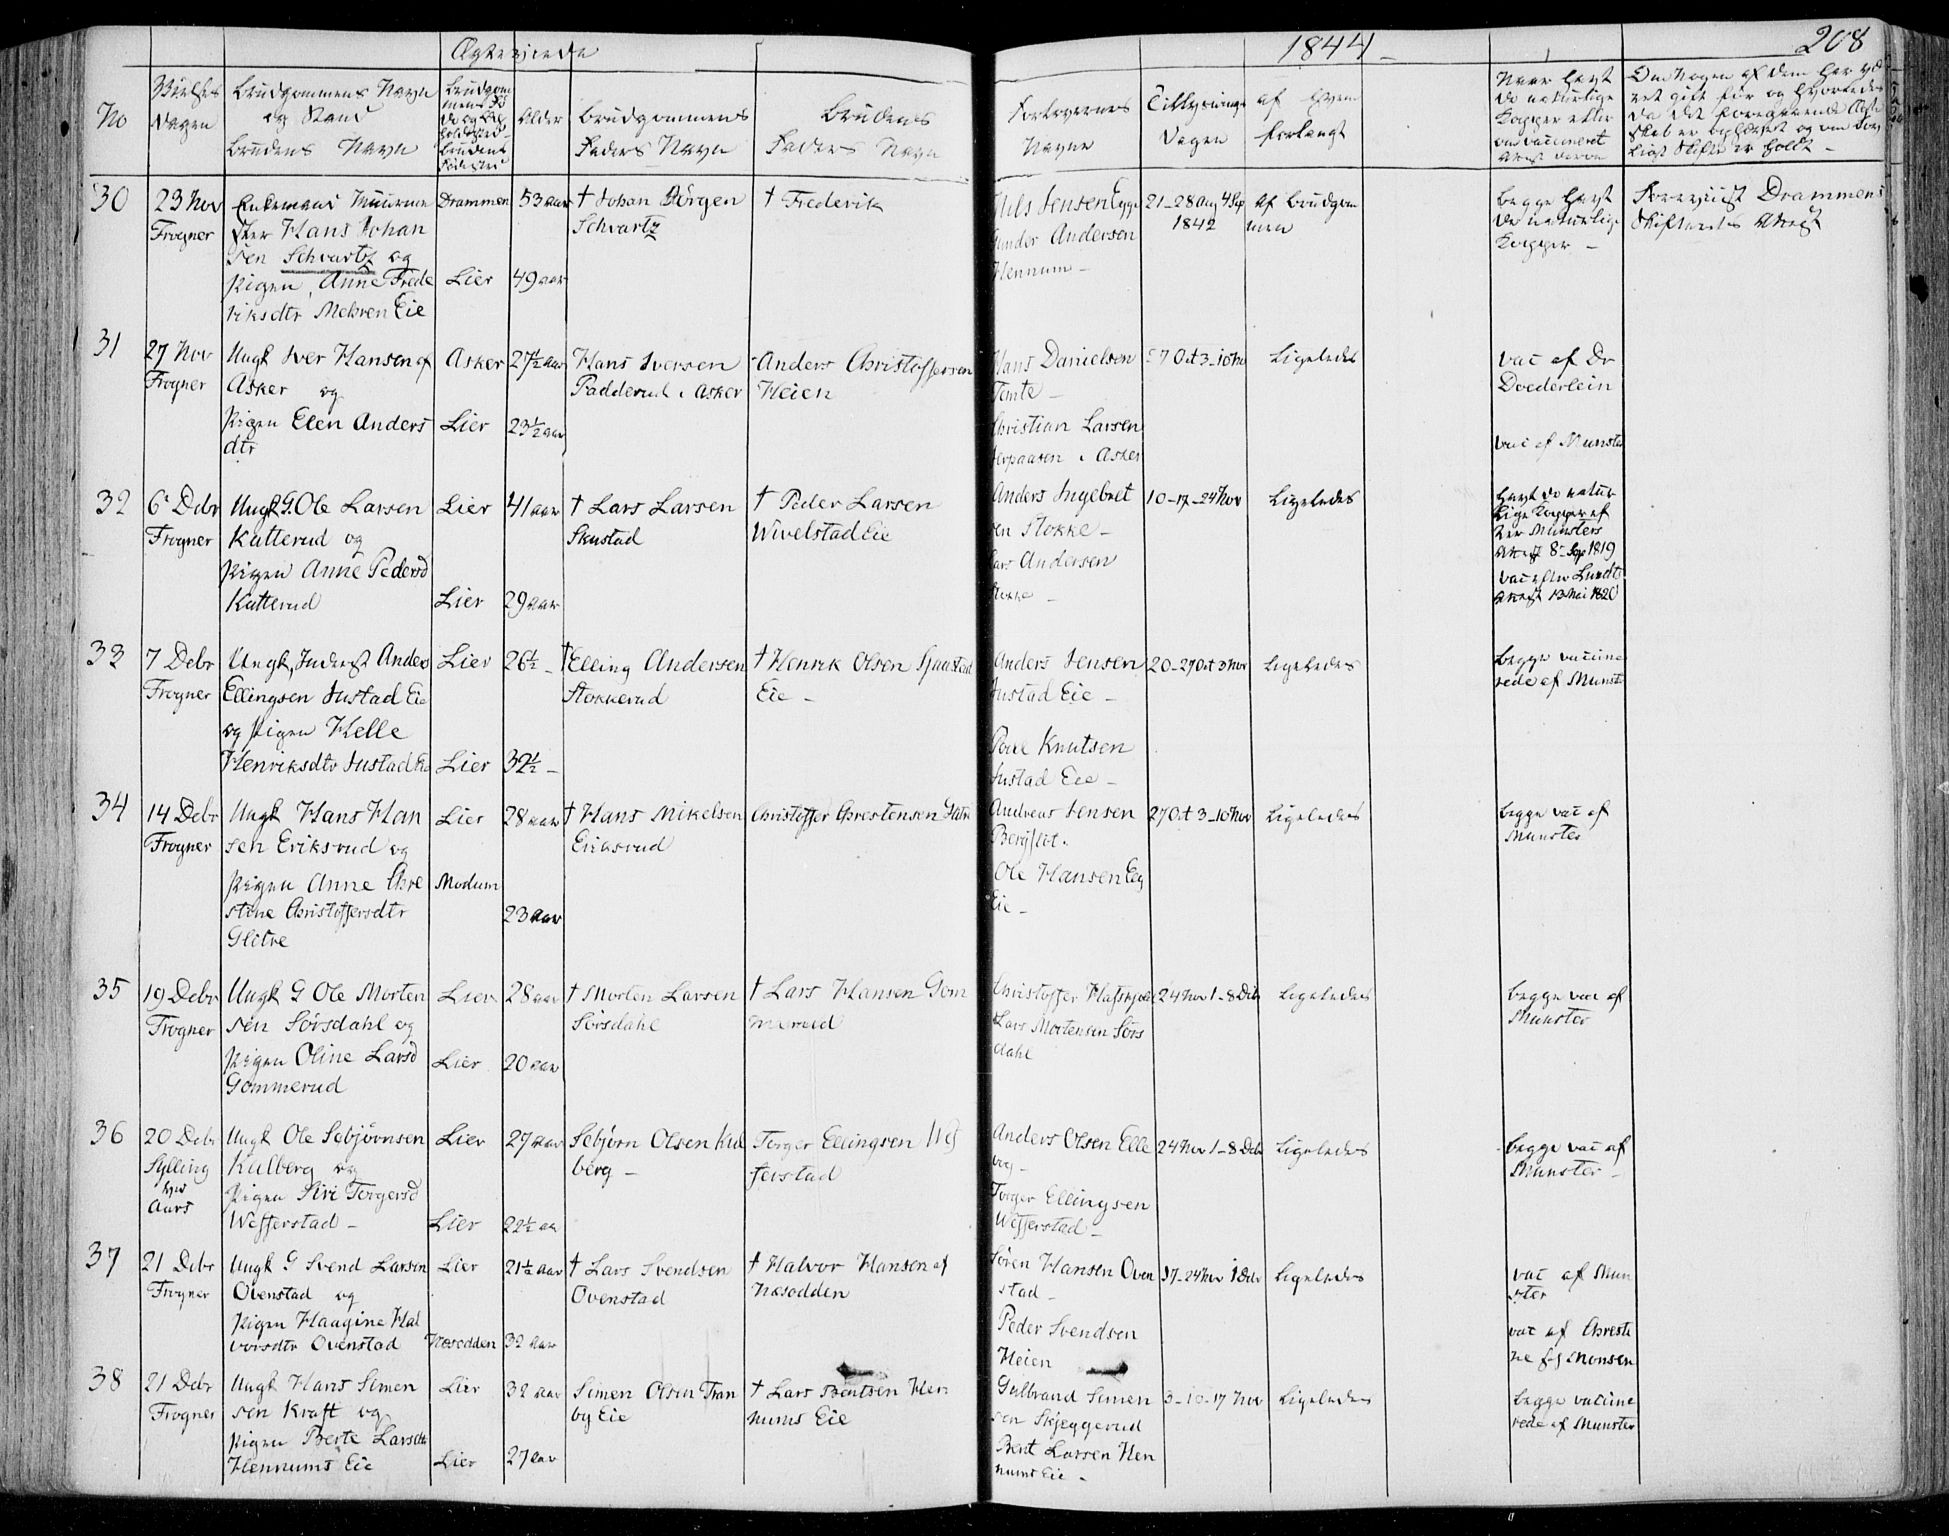 Ægteviede
1844
208
No
Vielses
Dagen
Brudgommens Navn
og Stand
Brudens Navn
Alder
Brudgommens
Faders Navn
Brudens
Faders Navn
Forlovernes
Navne
Tillysnings
Dagen
af hvem
forlangt
Naar havt
de naturlige
Kopper eller
vaccineret
Om Nogen af dem har væ
ret gift før og hvorledes
da det foregaaende Ægte
skab er ophævet og om lov
ligt Skifte er holdt -
30
23 Nov
Frogner
Enkemand Muurme
ster Hans Johan
sen Schvartz og
Pigen Anne Frede
riksdtr Mehren Eie
Drammen
Lier
53 aar
49 aar
† Johan Jörgen
Schvartz
† Frederik
Nils Jensen Egge
Gunder Andersen
Hennum -
21-28 Aug 4 Sep
1842
Af Brudgom
men
Begge havt
de naturlige
Kopper -
Foreviist Drammens
Skifterets Attest
31
27 Nov
Frogner
Ungk Iver Hansen af
Asker og
Pigen Elen Anders
dtr
Asker
Lier
27½ aar
23½ aar
Hans Iversen
Padderud i Asker
Anders Christoffersen
Heien
Hans Danielsen
Tomte -
Christian Larsen
i Asker
27 Oct 3-10 Nov
Ligeledes
vac af Dr
Doederlein
vac af Munster
32
6 Debr
Frogner
Ungk G. Ole Larsen
Katterud og
Pigen Anne Pedersd
Katterud
Lier
Lier
41 aar
29 aar
† Lars Larsen
Skustad
† Peder Larsen
Wivelstad Eie
Anders Ingebret
sen Stokke -
Lars Andersen
Stokke -
10-17-24 Nov
Ligeledes
havt de natur
lige Kopper af
Munsters
Attest 8 Sep 1819
vac efter Lundts
Attest 13 Mai 1820
33
7 Debr
Frogner
Ungk, Inderst Anders
Ellingsen Justad Eie
og Pigen Helle
Henriksdtr Justad Eie
Lier
Lier
26½ -
32½ -
† Elling Andersen
Stokkerud
† Henrik Olsen Sjaastad
Eie -
Anders Jensen
Justad Eie -
Poul Knutsen
Justad Eie -
20-27 Oct 3 Nov
Ligeledes
Begge vaccine
rede af Munster
34
14 Debr
Frogner
Ungk Hans Han
sen Eriksrud og
Pigen Anne Chre
stine Christoffersdtr
Glitre
Lier
Modum
28 aar
23 aar
† Hans Mikelsen
Eriksrud
Christoffer Chrestensen Glitre
Andreas Jensen
Bergflöt.
Ole Hansen Eeg
Eie -
27 Oct 3-10 Nov
Ligeledes
Begge vac af
Munster
35
19 Debr
Frogner
Ungk G Ole Morten
sen Sörsdahl og
Pigen Oline Larsd
Gommerud
Lier
Lier
28 aar
20 aar
† Morten Larsen
Sörsdahl
† Lars Hansen Gom
merud
Christoffer
Lars Mortensen Sörs
dahl
24 Nov 1-8 Debr
Ligeledes
begge vac af
Munster
36
20 Debr
Sylling
Aars
Ungk Ole Sebjörnsen
Kulberg og
Pigen Siri Torgersd
Wefferstad -
Lier
Lier
27 aar
22½ aar
Sebjörn Olsen Kul
berg -
Torger Ellingsen Wef
ferstad
Anders Olsen Elle
Torger Ellingsen
Wefferstad -
24 Nov 1-8 Debr
Ligeledes
begge vac af
Munster -
37
21 Debr
Frogner
Ungk G Svend Larsen
Ovenstad og
Pigen Haagine Hal
vorsdtr Ovenstad
Lier
Næsodden
21½ aar
32 aar
† Lars Svendsen
Ovenstad
† Halvor Hansen af
Næsodden
Sören Hansen Oven
stad -
Peder Svendsen
Heien
17-24 Nov 1 Debr
Ligeledes
vac af Mun
ster
vac af Chresti
ne Monsen
38
21 Debr
Frogner
Ungk Hans Simen
sen Kraft og
Pigen Berte Larsdtr
Hennums Eie
Lier
Lier
32 aar
27 aar
Simen Olsen Tran
by Eie
† Lars Bentsen Hen
nums Eie
Gulbrand Simen
sen Skjeggerud
Bent Larsen Hen
nums Eie -
3-10-17 Nov
Ligeledes
Begge vaccine
rede af Munster